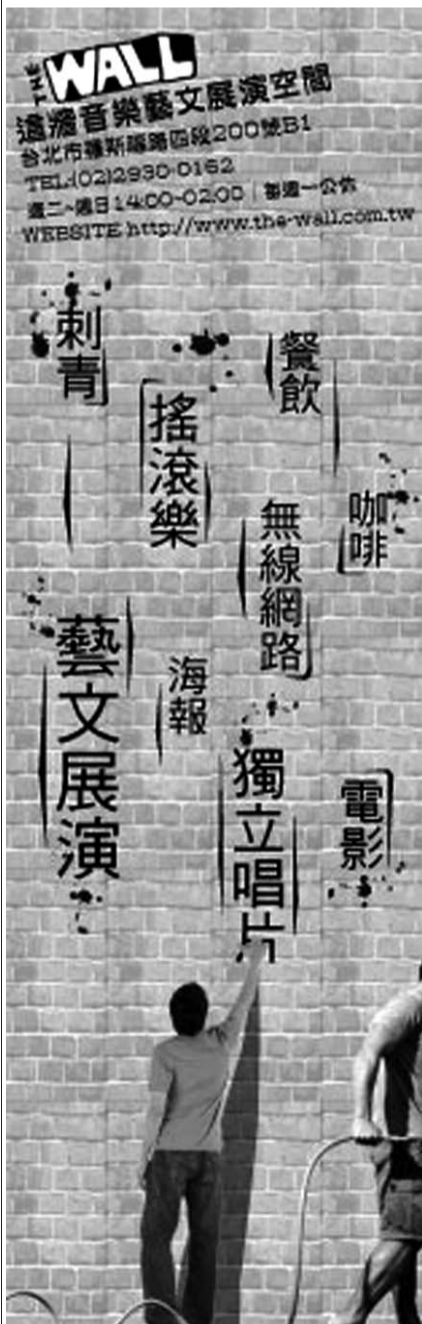 THE WALL
這牆音樂藝文展演空間
台北市羅斯福路四段200號B1
TEL:(02)2930-0162
週二~週日14:00-02:00｜每週一公休
WEBSITE http://www.the-wall.com.tw
刺青
餐飲
搖滾樂
咖啡
無線網路
藝文展演
海報
獨立唱片
電影